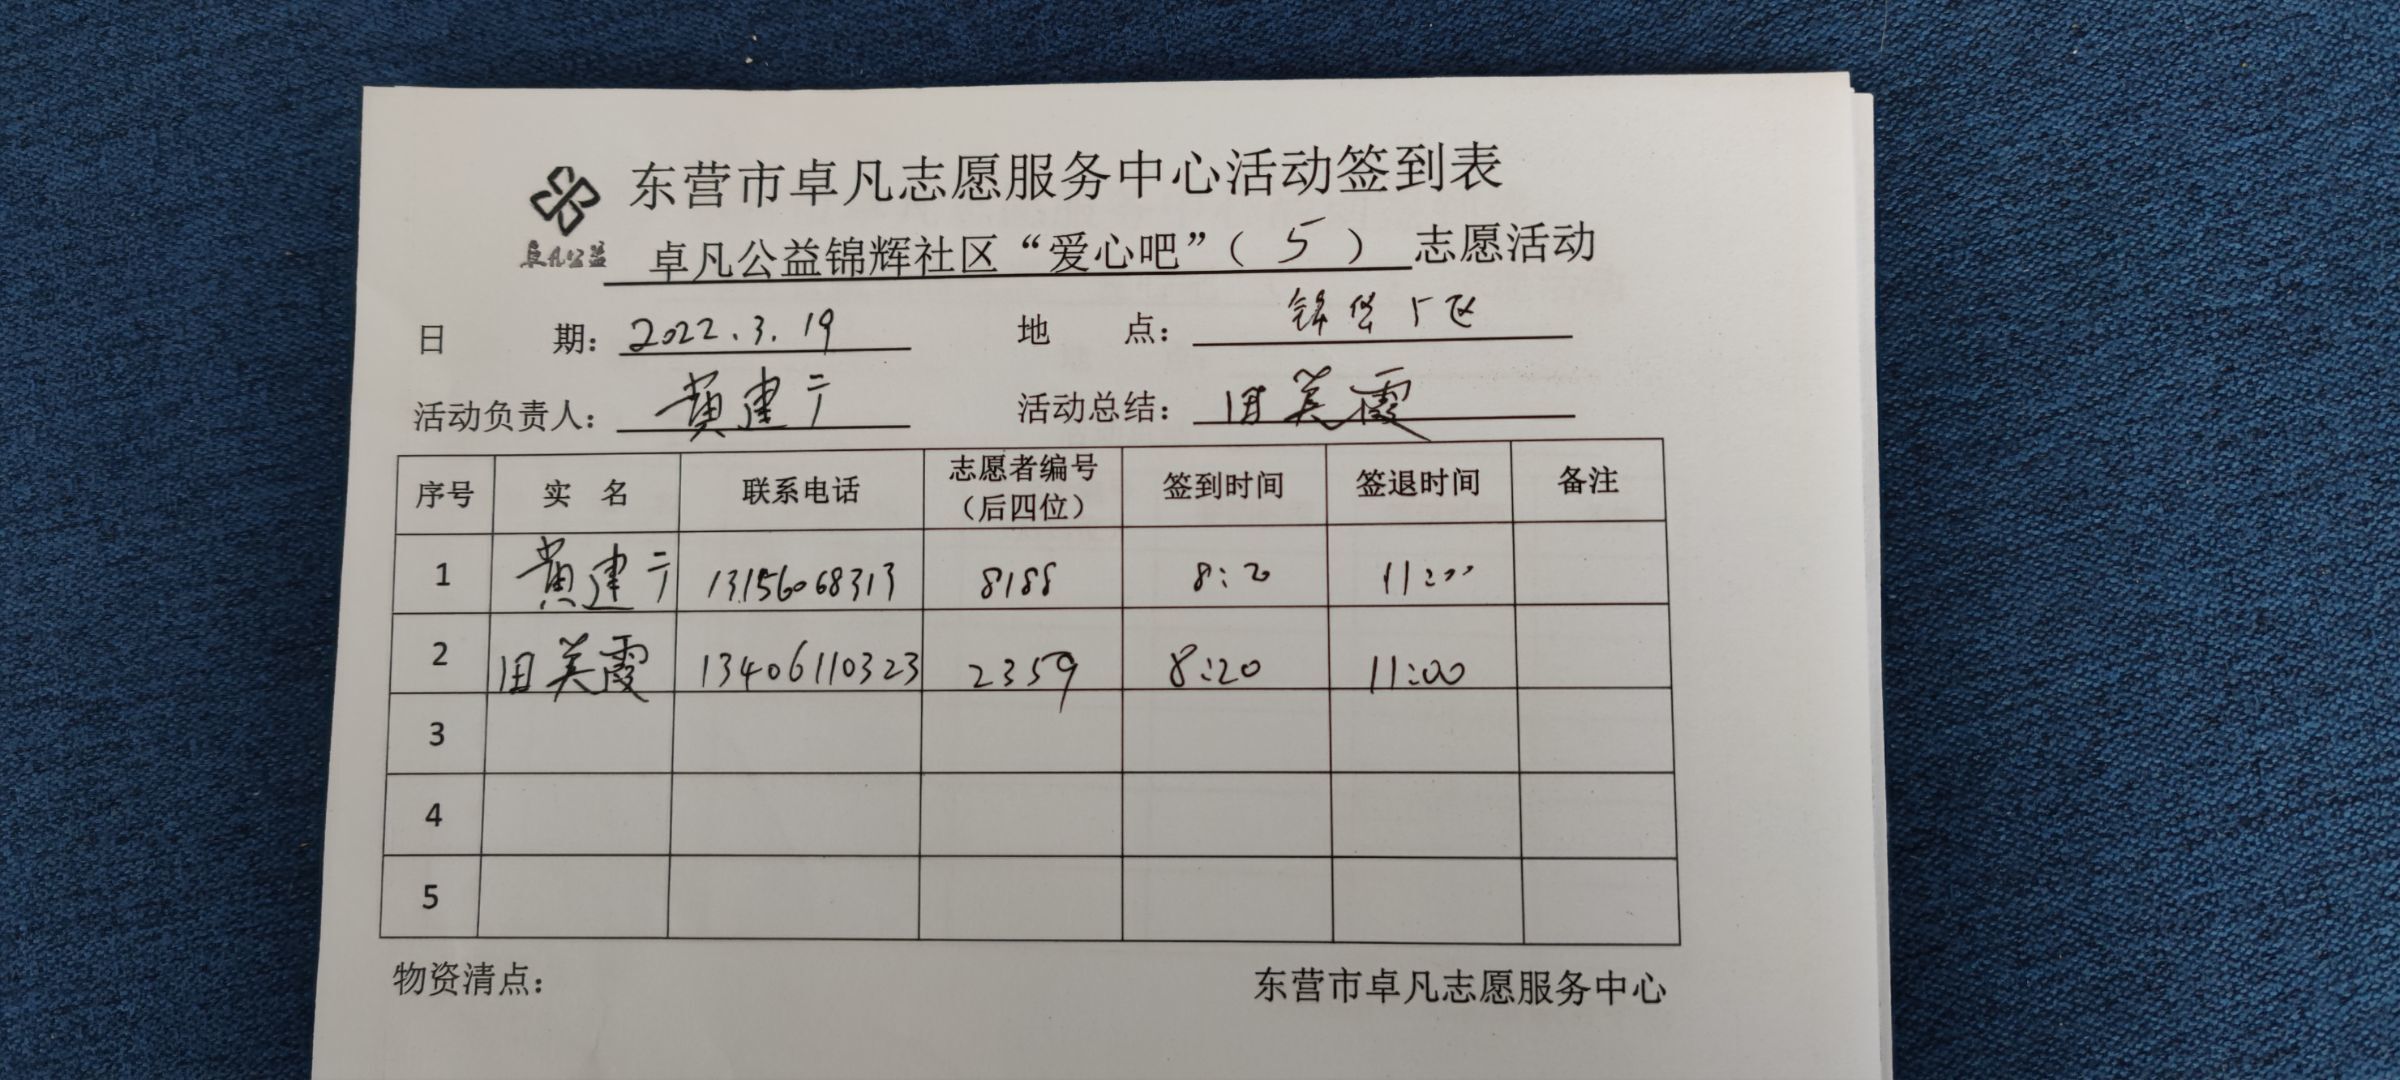 东营市卓凡志愿服务中心活动签到表
卓凡公益
卓凡公益锦辉社区“爱心吧”（5）志愿活动
日 期：2022.3.19 地 点：锦华 区
活动负责人：黄建 活动总结：田美霞
序号 实 名 联系电话 志愿者编号（后四位） 签到时间 签退时间 备注
1 黄建 13156068313 8188 8:20 11:00
2 田美霞 13406110323 2359 8:20 11:00
3
4
5
物资清点： 东营市卓凡志愿服务中心